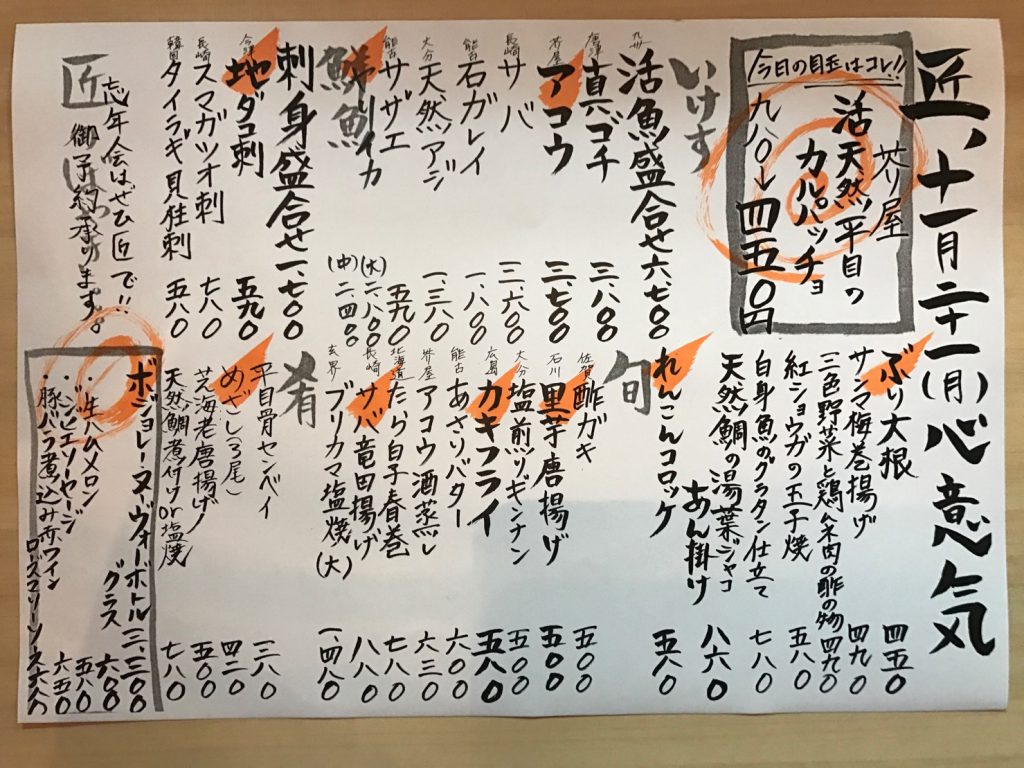 匠、十一月二十一(月)心意気
今日の目玉はコレ!!
芥屋
活天然平目の
カルパッチョ
九八〇→四五〇円
いけす
九州 活魚盛合せ 六、七〇〇
唐津 真ゴチ 三、八〇〇
芥屋 アコウ 三、七〇〇
長崎 サバ 三、六〇〇
能古 石ガレイ 一、八〇〇
大分 天然アジ 一、三八〇
能古 サザエ 五九〇
ヤリイカ (大)二、八〇〇
(中)二、四〇〇
鮮魚
刺身盛合せ 一、七〇〇
地ダコ刺 五九〇
長崎 スマガツオ刺 七八〇
韓国 タイラギ貝柱刺 五八〇
忘年会はぜひ匠で!!
御予約承ります。
匠
ぶり大根 四五〇
サンマ梅巻揚げ 四九〇
三色野菜と鶏ササミ肉の酢の物 四九〇
紅ショウガの玉子焼 五八〇
白身魚のグラタン仕立て 七八〇
天然鯛の湯葉ジャコ
あん掛け 八六〇
れんこんコロッケ 五八〇
旬
佐賀 酢ガキ 五〇〇
石川 里芋唐揚げ 五〇〇
大分 塩煎りギンナン 五〇〇
広島 カキフライ 五八〇
能古 あさりバター 六〇〇
芥屋 アコウ酒蒸し 六三〇
北海道 たら白子春巻 七八〇
長崎 サバ竜田揚げ 八八〇
玄界 ブリカマ塩焼(大) 一、四八〇
肴
平目骨センベイ 三八〇
めざし(3尾) 四二〇
芝海老唐揚げ 五〇〇
天然鯛煮付けor塩焼 七八〇
ボジョレーヌーヴォーボトル 三、三〇〇
グラス 六〇〇
・生ハムメロン 五八〇
・ジビエソーセージ 六五〇
・豚バラ煮込み赤ワイン
ローズマリーソース